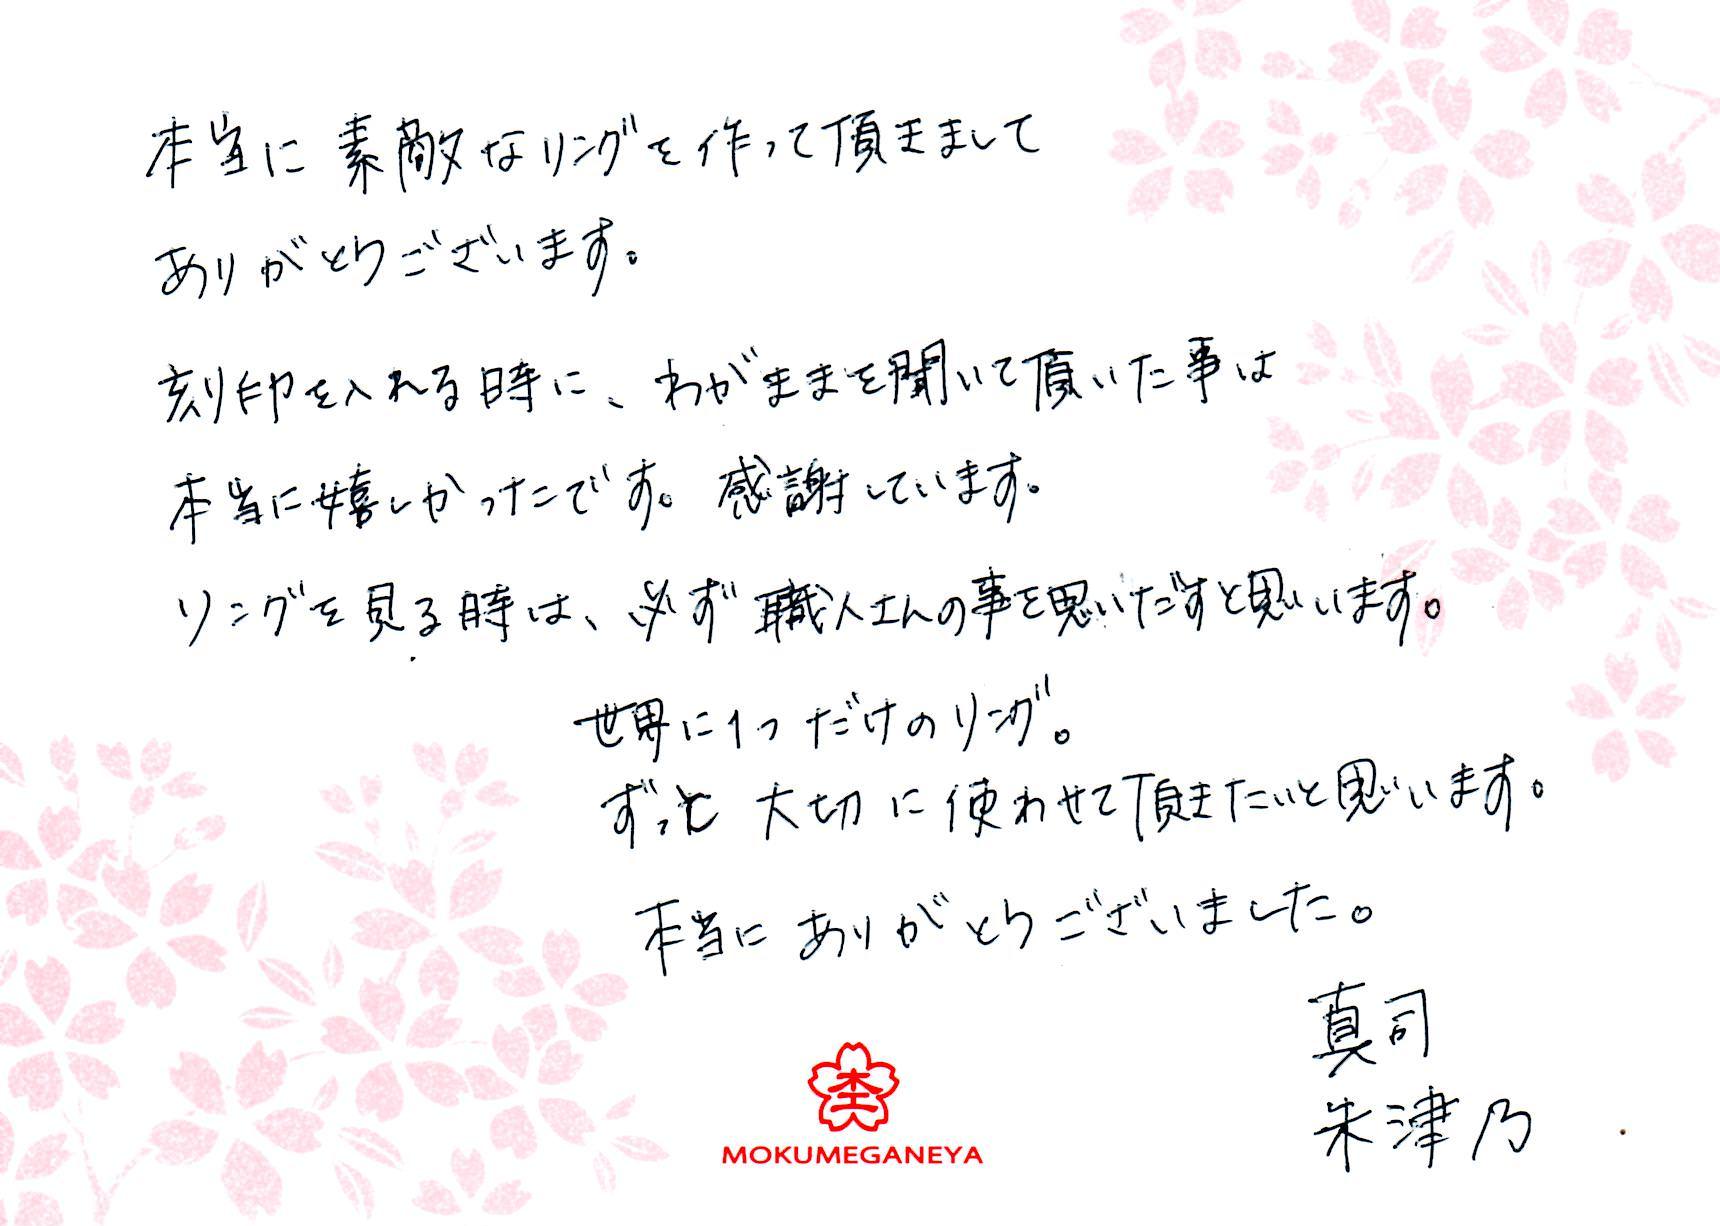 本当に素敵なリングを作って頂きまして
ありがとうございます。
刻印を入れる時に、わがままを聞いて頂いた事は
本当に嬉しかったです。感謝しています。
リングを見る時は、必ず職人さんの事を思いだすと思います。
世界に1つだけのリング。
ずっと大切に使わせて頂きたいと思います。
本当にありがとうございました。
真司
朱津乃
MOKUMEGANEYA